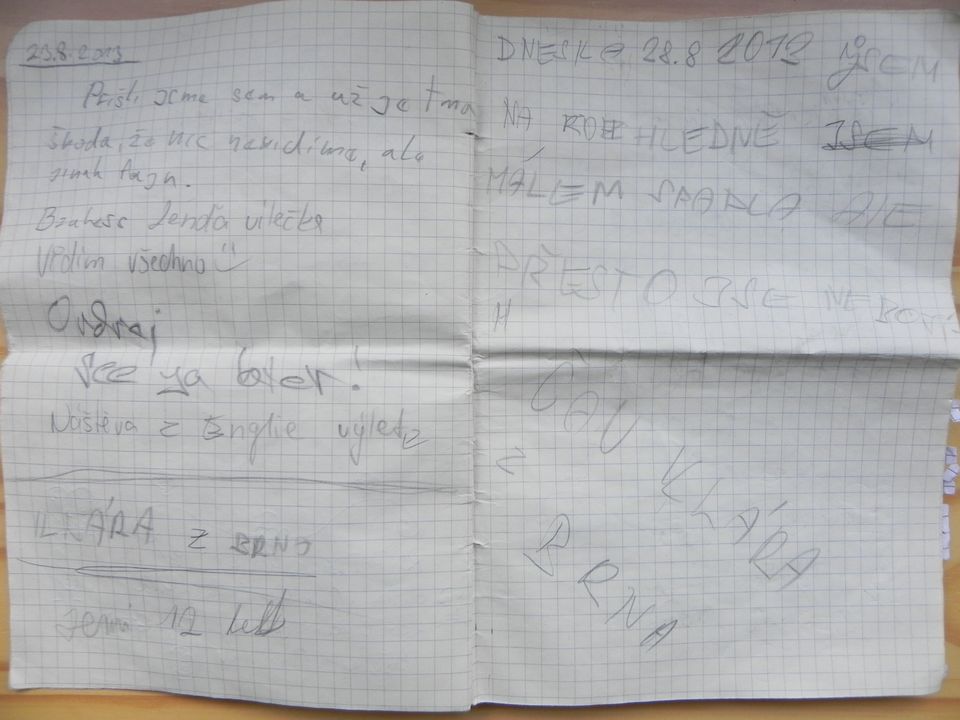 23.8.2013
Přišli jsme sem a už je tma
škoda, že nic nevidíme, ale
jinak fajn.
Lenďa vilečka
Vidim všechno
Ondrej
See ya later!
Náštěva z Englie výlet
KLÁRA z BRNO
Jemi 12 let
DNESKA 28.8 2012 JSEM
NA ROZHLEDNĚ JSEM
MÁLEM SPADLA ALE
PŘESTO JSE NEBOJÍ
ČAU
KLÁRA
Z
BRNA